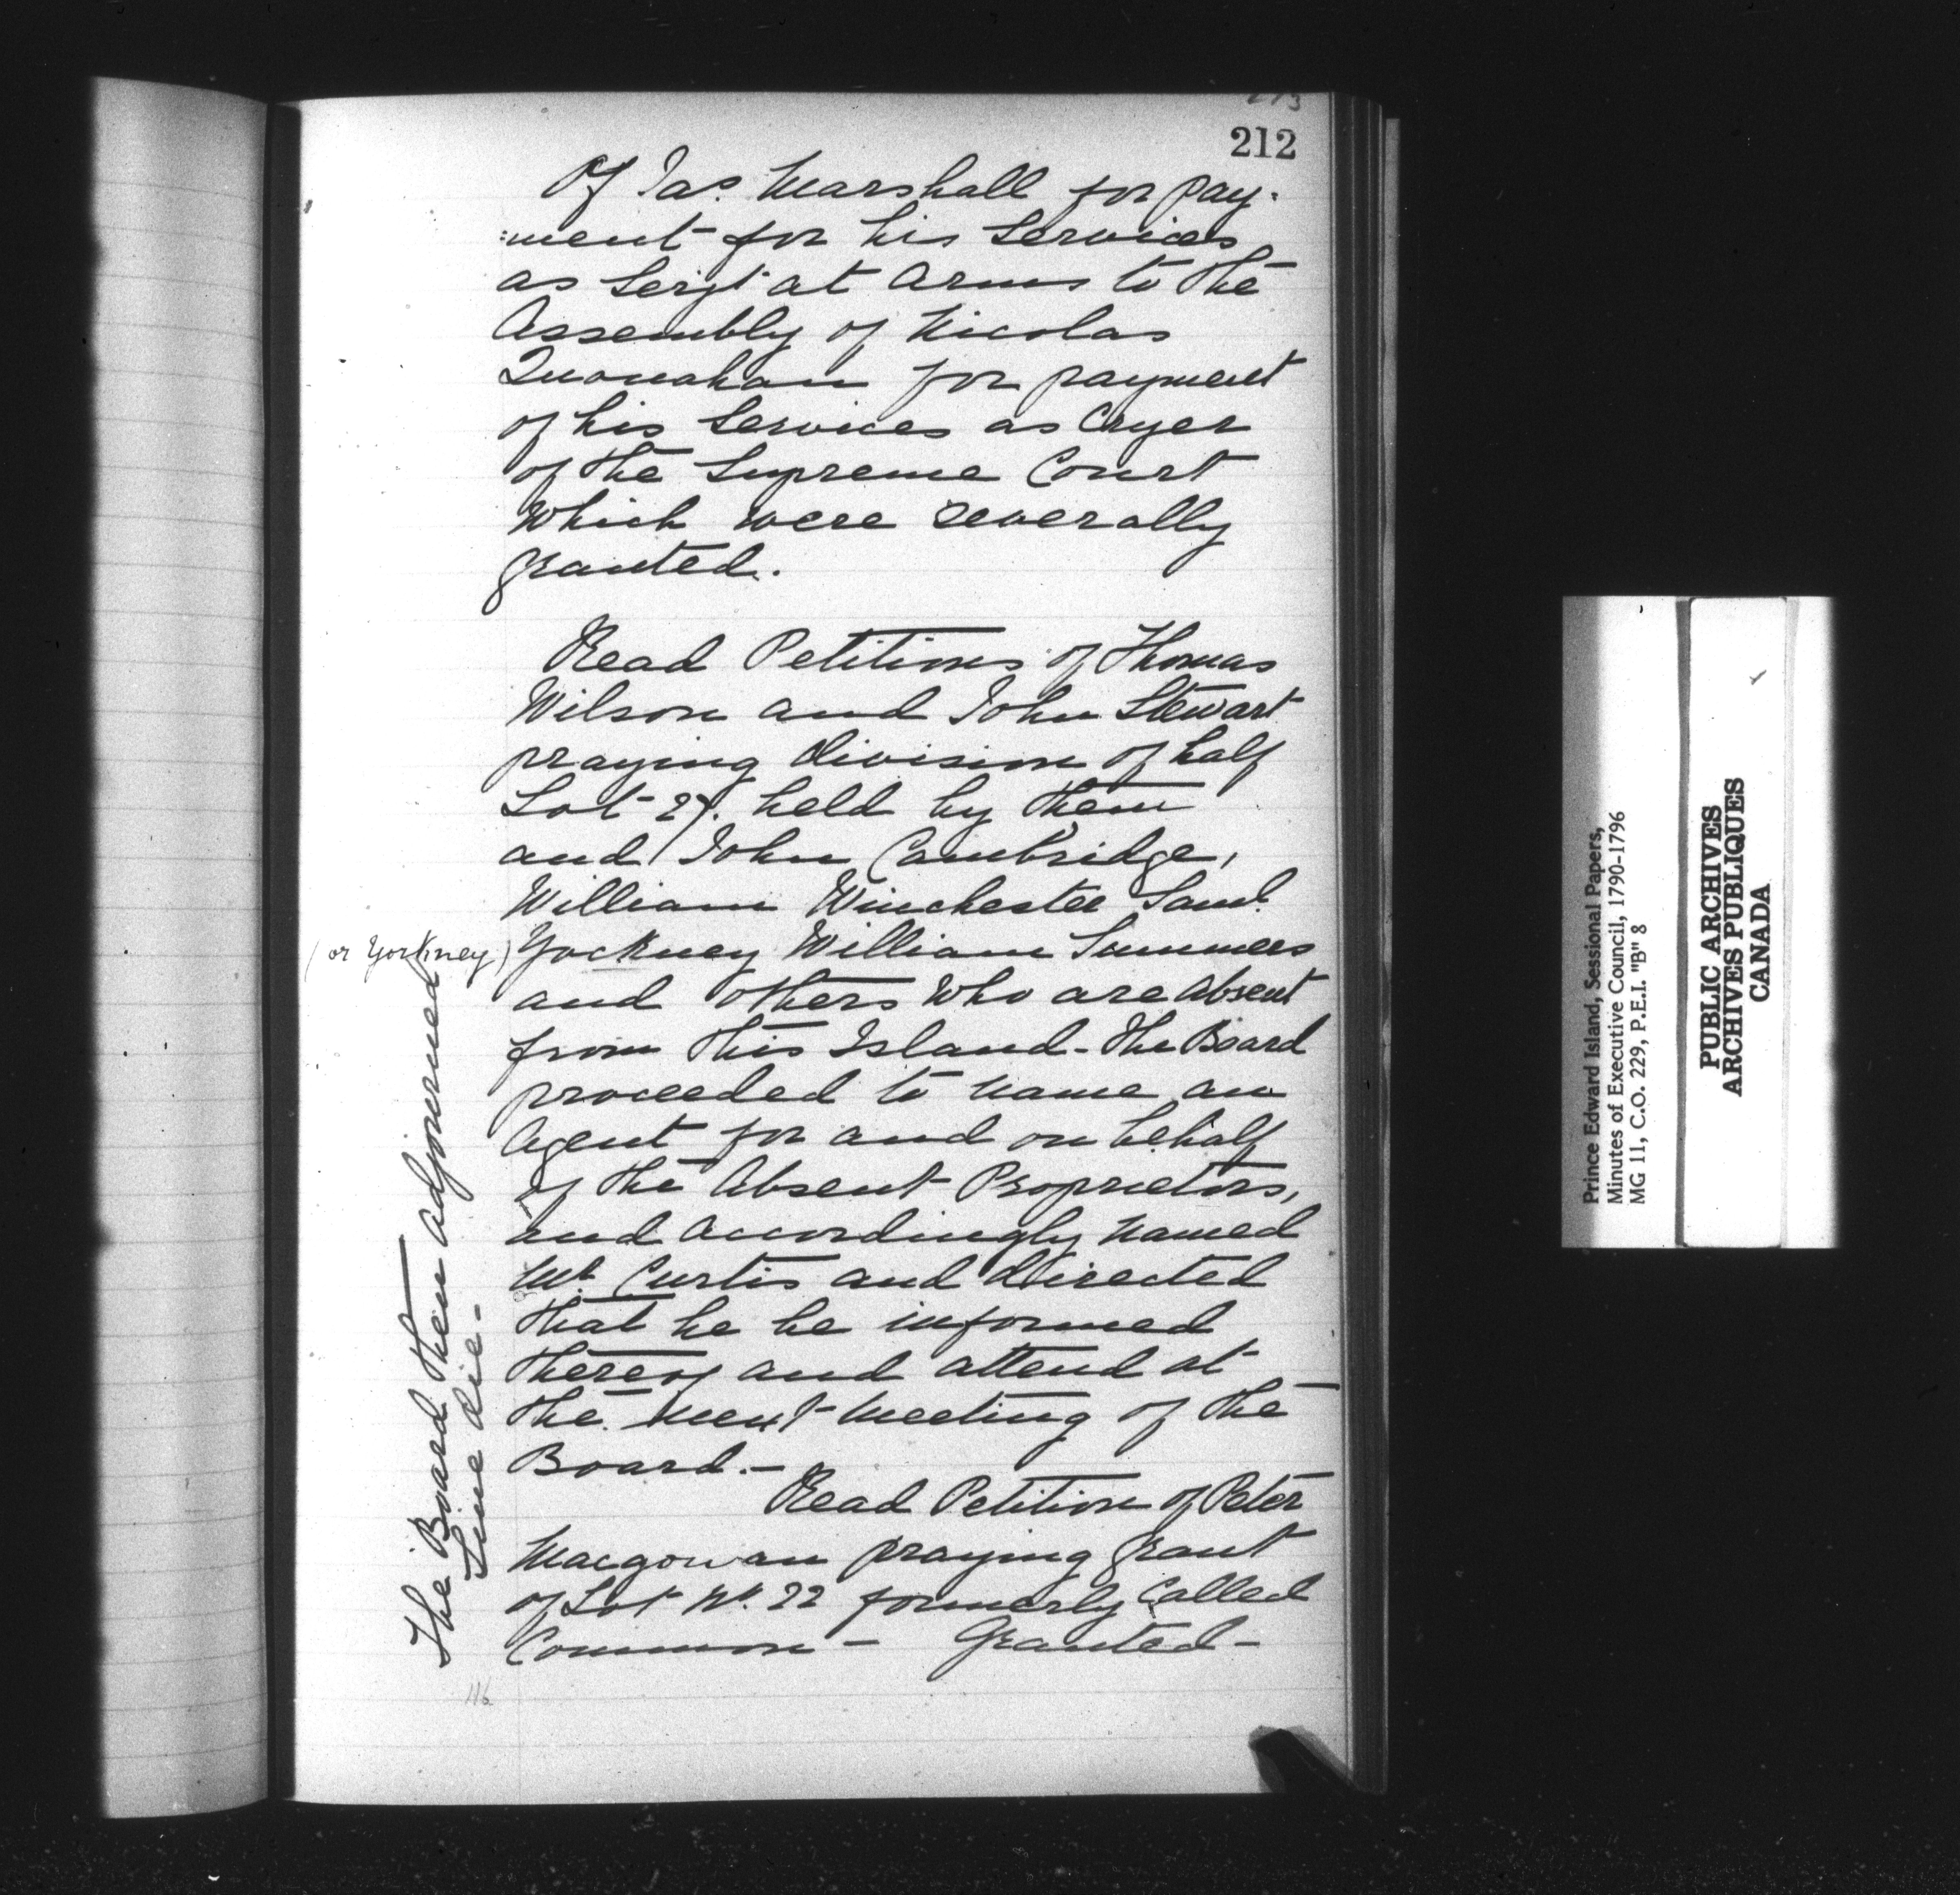 212
Of Jas. Marshall for pay-
:ment for his Services
as Serjt at Arms to the
Assembly of Nicolas
for payment
of his Services as Cryer
of the Supreme Court
Which were severally
granted.
Read Petitions of Thomas
Wilson and John Stewart
praying division of half
Lot 27. held by them
and John Cambridge,
William Winchester Saml.
(or Yorkney) Yockney William Summers
and others Who are absent
from this Island - The Board
proceeded to name an
Agent for and on behalf
of the Absent Proprietors,
and accordingly named
Mr. Curtis and directed
that he be informed
thereof and attend at
the next meeting of the
Board. -
Read Petition of Peter
Macgowan praying Grant
of Lot No. 22 formerly Called
Common - Granted -
The Board then adjourned
Sine die -
116
Prince Edward Island, Sessional Papers,
Minutes of Executive Council, 1790-1796
MG 11, C.O. 229, P.E.I. "B" 8
PUBLIC ARCHIVES
ARCHIVES PUBLIQUES
CANADA